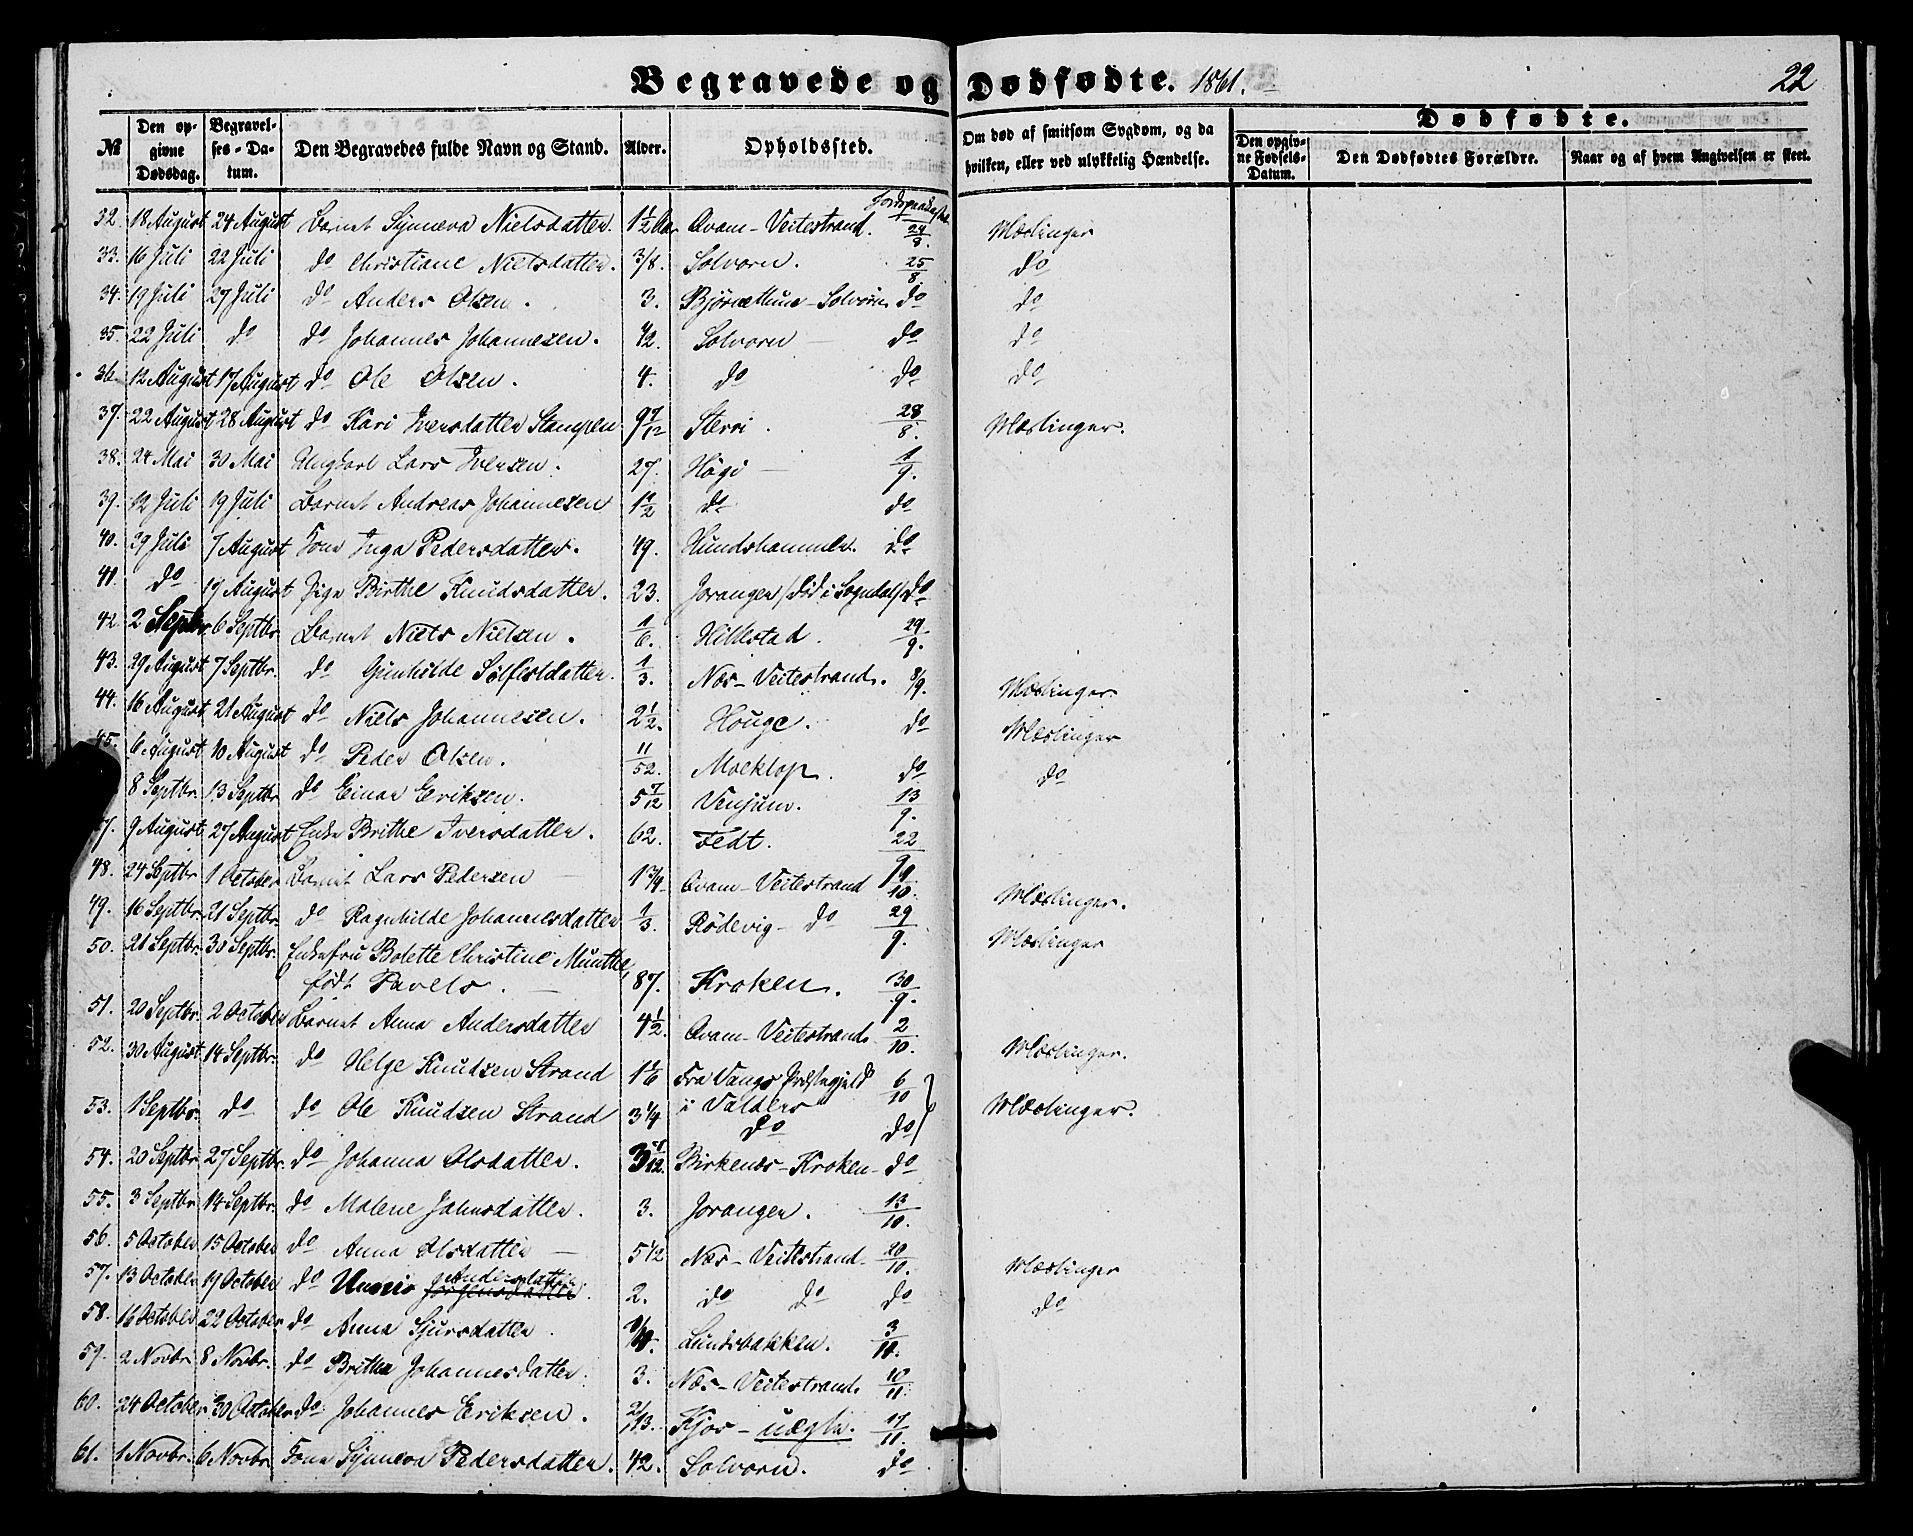 Begravede og Dødfødte. 1861. 22
№ Den opgivne Dødsdag. Begravelses-Datum. Den Begravedes fulde Navn og Stand. Alder. Opholdssted. Om død af smitsom Sygdom, og da hvilken, eller ved ulykkelig Hændelse. Dødfødte. Den opgivne Fødsels-Datum. Den Dødfødtes Forældre. Naar og af hvem Angivelsen er skeet.
Jordspaakastelse
32. 18 August 24 August Barnet Synneva Nielsdatter. 1 1/2 Aar Qvam-Veitestrand. 24/8. Mæslinger
33. 16 Juli 22 Juli do Christiane Nielsdatter. 3/8. Solvorn. 25/8 do
34. 19 Juli 27 Juli do Anders Olsen. 3. Solvorn do do
35. 22 Juli do do Johannes Johannesen. 1/2. Solvorn do do
36. 12 August 17 August do Ole Olsen. 4. do do do
37. 22 August 28 August do Kari Iversdatter Stampen 9 7/12 Sterri. 28/8. Mæslinger.
38. 24 Mai 30 Mai Ungkarl Lars Iversen. 27. Högi 1/9.
39. 12 Juli 19 Juli Barnet Andreas Johannesen 1 1/2 do do
40. 29 Juli 7 August Kone Inga Pedersdatter. 49. Hundshammer. do
41. do 19 August Pige Birthe Knudsdatter. 23. Joranger (død i Sogndal) do
42. 2 Septbr. 6 Septbr. Barnet Niels Nielsen. 1/6. Hillestad. 29/9.
43. 29 August 7 Septbr. do Gunhilde Sölfestdatter. 1/3. Næs-Veitestrand. 8/9. Mæslinger.
44. 16 August 21 August do Niels Johannesen. 2 1/2. Houge. do Mæslinger
45. 6 August 10 August do Peder Olsen. 11/52. Moeklop. do do
8 Septbr. 13 Septbr. do Einar Eriksen. 5 7/12 Venjum. 13/9.
7. 9 August 27 August Enke Brithe Iversdatter. 62. Fedt. 22/9
48. 24 Septbr. 1 October Barnet Lars Pedersen 1 3/4 Qvam-Veitestrand 9/10. Mæslinger.
49. 16 Septbr. 21 Septbr. do Ragnhilde Johannesdatter 1/3. Rödevig- do 29/9. Mæslinger
50. 21 Septbr. 30 Septbr. Enkefru Bolette Christine Munthe,
født Pavels. 87. Kroken. 30/9.
51. 20 Septbr. 2 October Barnet Anna Andersdatter 4 1/2. Qvam-Veitestrand. 2/10. Mæslinger.
52. 30 August 14 Septbr. do Helge Knudsen Strand 1 1/6 Fra Vangs Præstegjeld 6/10
i Valders
53. 1 Septbr. do do Ole Knudsen Strand 3 1/4 do do Mæslinger.
54. 20 Septbr. 27 Septbr. do Johanna Olsdatter. Birkenæs-Kroken- do
55. 3 Septbr. 14 Septbr. do Malene Jahnsdatter. 3. Joranger. 13/10.
56. 5 October 15 October do Anna Olsdatter 5 1/12 Næs-Veitestrand. 20/10. Mæslinger
57. 13 October 19 October do Unni Jørgensdatter Andersdatter. 2. do do do do
58. 16 October 22 October do Anna Sjursdatter. Lundsbakken. 3/11.
59. 2 Novbr. 8 Novbr. do Brithe Johannesdatter. 3. Næs-Veitestrand. 10/11.
60. 24 October 30 October do Johannes Eriksen. 2/13. Kjos - uægte. 17/11.
61. 1 Novbr. 6 Novbr. Kone Synneva Pedersdatter. 42. Solvorn. do